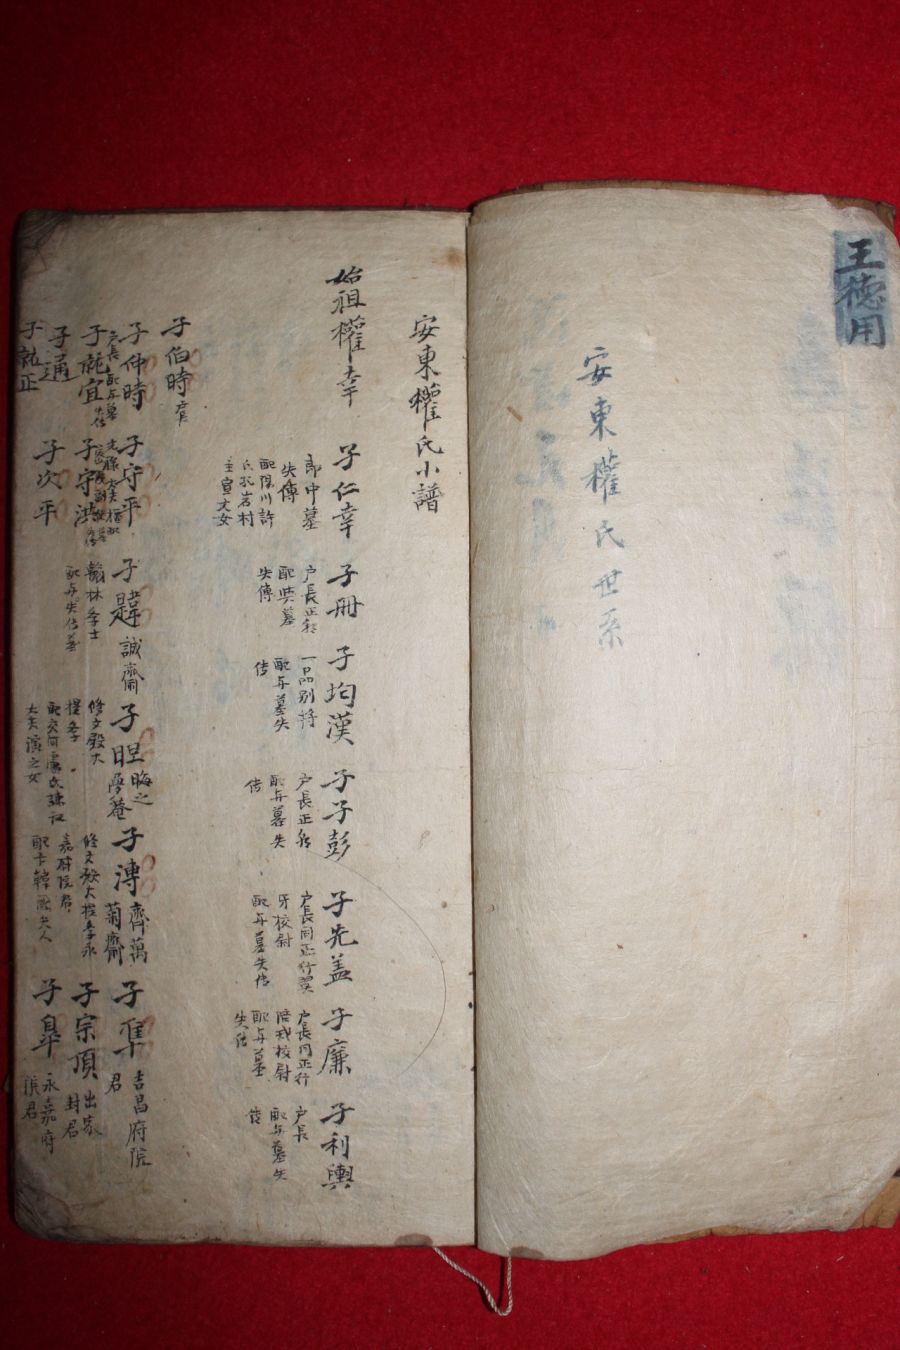 王德用
安東權氏世系
安東權氏小譜
始祖權幸
子仁幸
郎中墓
失傳
子冊
戶長正朝
配与墓
失傳
子均漢
一品別將
配与墓失
传
子子彭
戶長正朝
配与墓失
传
子先盖
戶長同正行
牙校尉
配与墓失传
子廉
戶長同正行
陪戎校尉
配与墓
失传
子利輿
戶長
配与墓失
传
子伯時
子仲時
戶長配与墓
失传
子守平
子韙
誠齋
翰林学士
配与失传墓
子㫜
晦之
修文殿大
提学
子溥
齊萬
菊齋
修文殿大提学永
嘉府院君
配卞韓国夫人
子準
吉昌府院
君
子就宜
子守洪
子宗頂
出家
封君
子通
子次平
子皐
永嘉府
院君
子就正